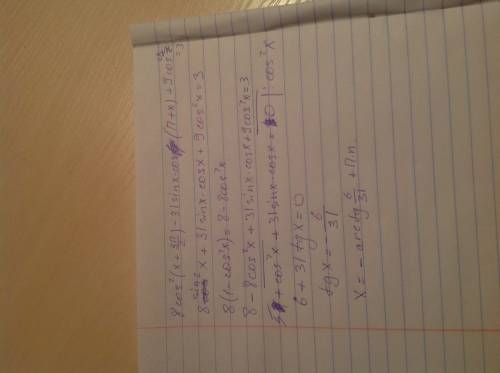 8cos²(x + 3π/2) - 31 sinx·cos(π+x) + 9cos²x = 3
8 sin² x + 31 sinx·cosx + 9cos²x = 3
8(1 - cos²x) = 8 - 8cos²x
8 - 8cos²x + 31 sinx·cosx + 9cos²x = 3
+ cos²x + 31 sinx·cosx = 0 | : cos²x
6 + 31 tgx = 0
tgx = - 6/31
x = - arctg 6/31 + π·n